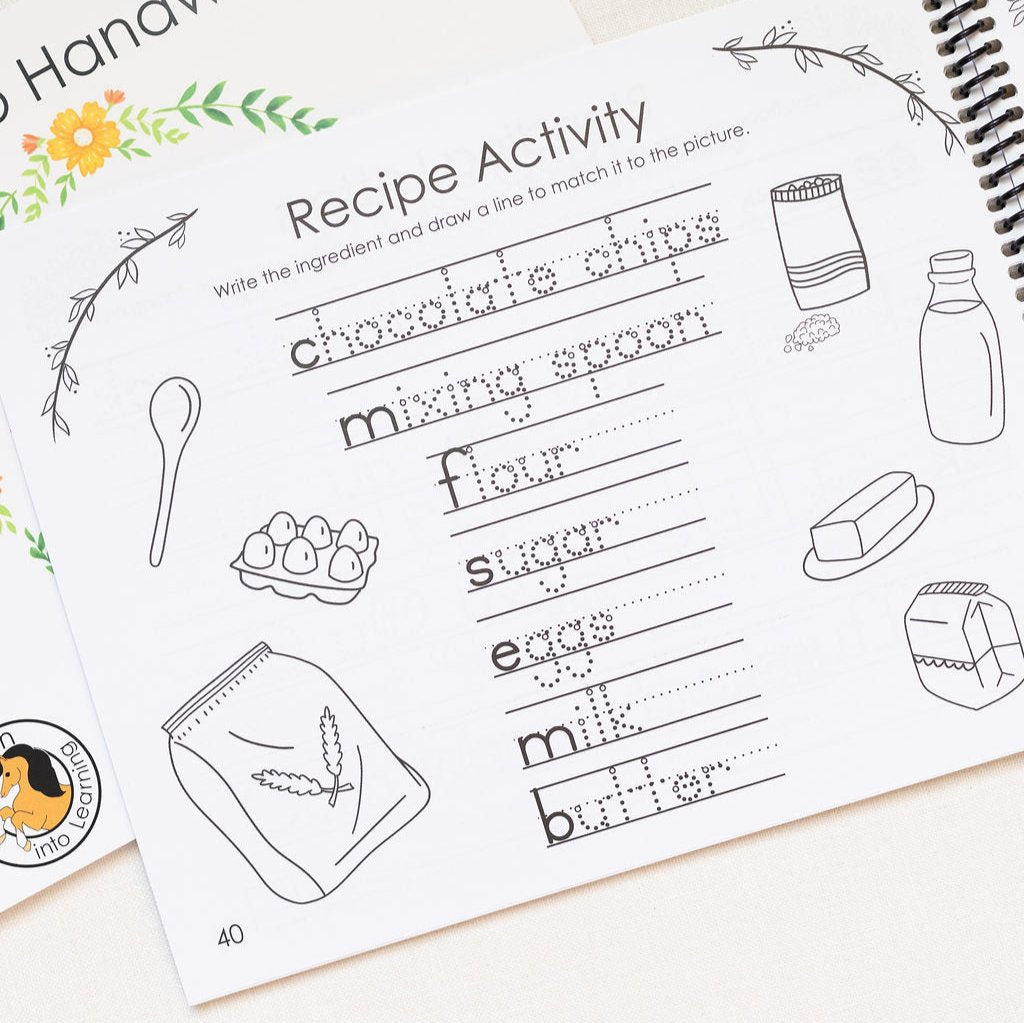 Recipe Activity
Write the ingredient and draw a line to match it to the picture.
chocolate chips
mixing spoon
flour
sugar
eggs
milk
butter
40
into Learning